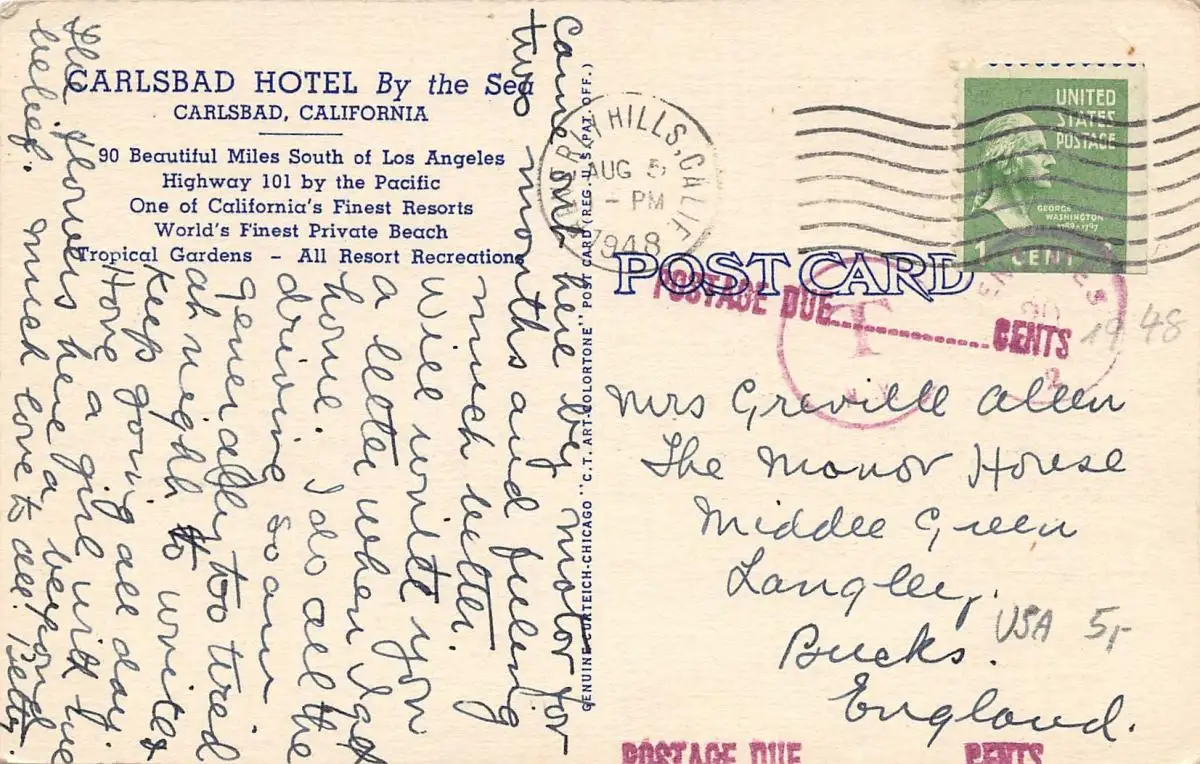 CARLSBAD HOTEL By the Sea
CARLSBAD, CALIFORNIA
90 Beautiful Miles South of Los Angeles
Highway 101 by the Pacific
One of California's Finest Resorts
World's Finest Private Beach
Tropical Gardens - All Resort Recreations
Came out here by motor for
two months and feeling
much better.
Will write you
a letter when I get
home. I do all the
driving so am
generally too tired
at night to write &
keep going all day.
Have a girl with me
The flowers here are beyond
belief. much love to all. Betty.
GENUINE CURTEICH-CHICAGO "C.T. ART-COLORTONE" POST CARD (REG. U.S. PAT. OFF.)
HILLS, CALIF.
AUG 5
PM
1948
UNITED
STATES
POSTAGE
GEORGE
WASHINGTON
1789-1797
1 CENT
POST CARD
POSTAGE DUE CENTS
T
N.Y.
2
1948
Mrs Greville Allen
The Manor House
Middle Green
Langley,
Bucks.
England.
USA 5,-
POSTAGE DUE CENTS